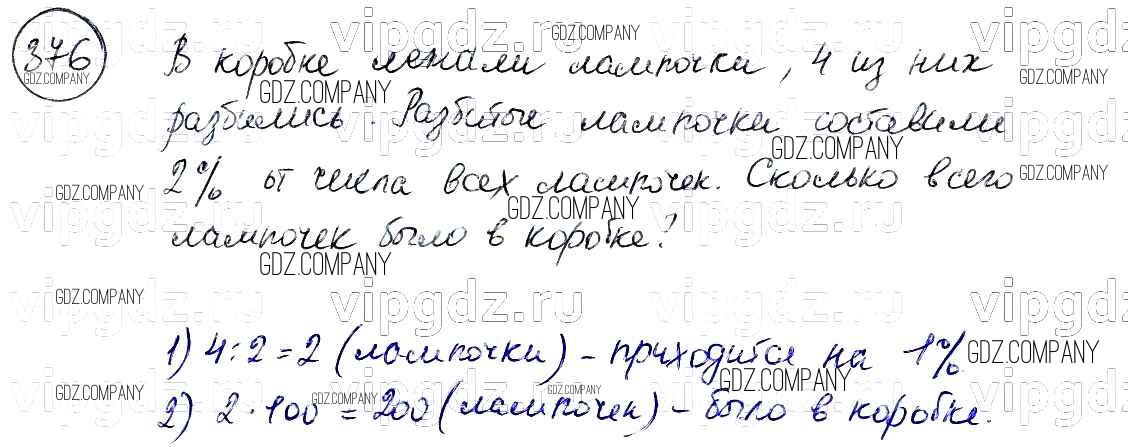 376
В коробке лежали лампочки, 4 из них
разбились. Разбитые лампочки составили
2% от числа всех лампочек. Сколько всего
лампочек было в коробке?
1) 4:2=2 (лампочки) - приходится на 1%
2) 2·100=200 (лампочек) - было в коробке.
vipgdz.ru
GDZ.COMPANY